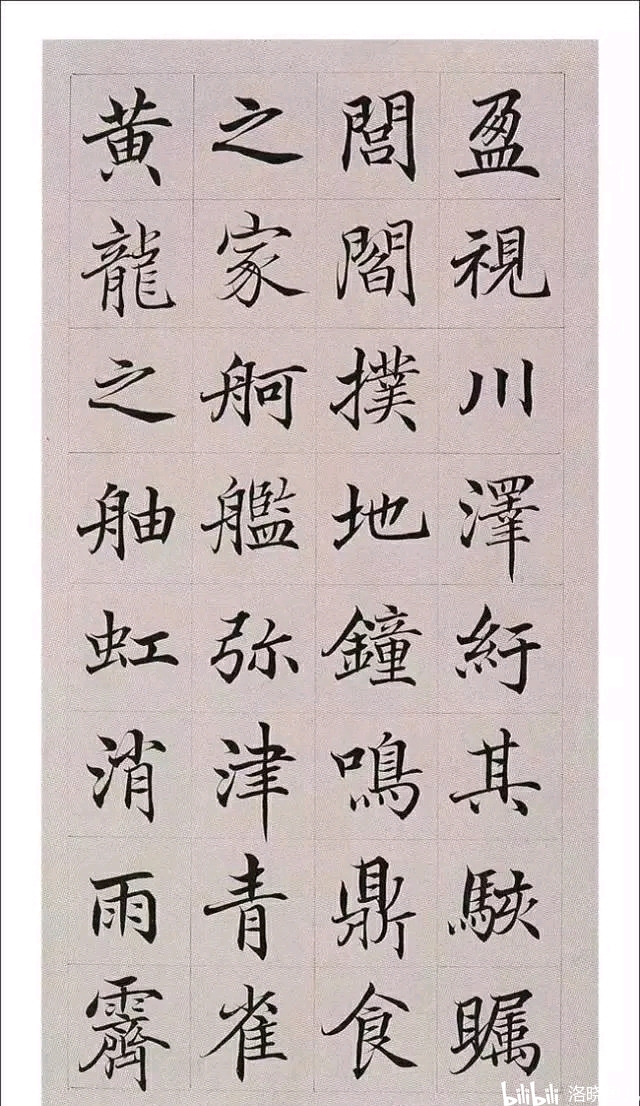 盈視川澤紆其駭矚
閭閻撲地鐘鳴鼎食
之家舸艦弥津青雀
黄龍之舳虹消雨霽
bilibili 洛晓